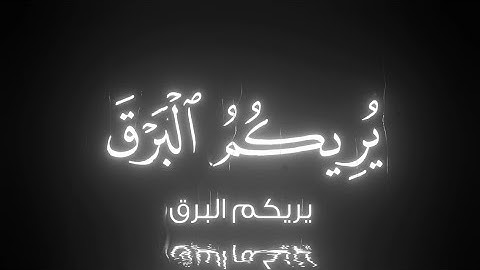 يُرِيكُمُ ٱلْبَرْقَ
يريكم البرق